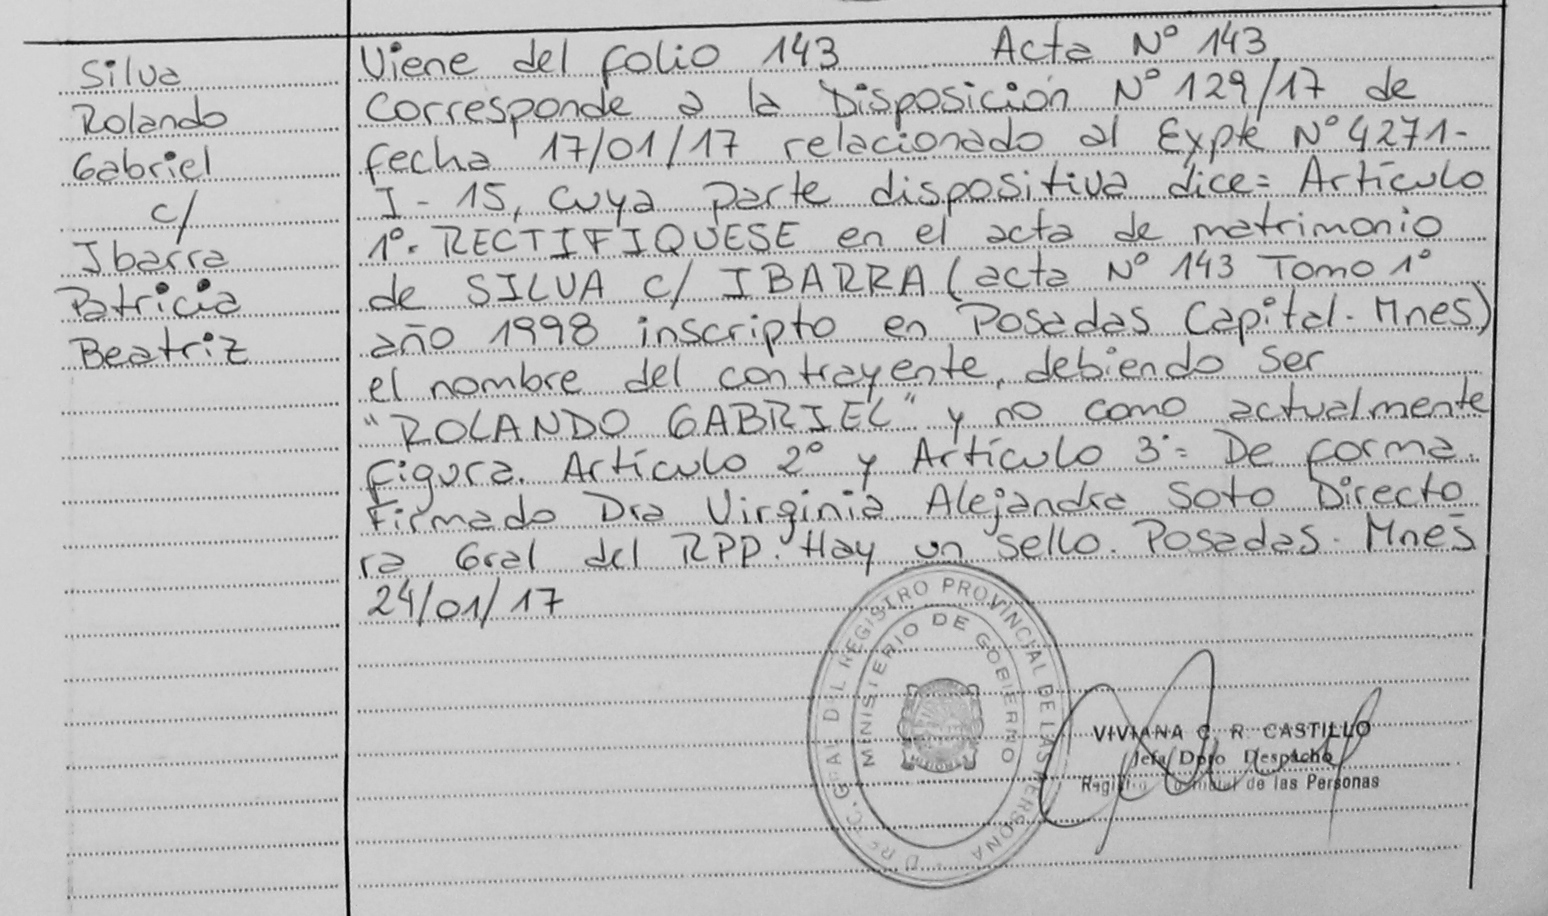 Silva
Rolando
Gabriel
c/
Ibarra
Patricia
Beatriz
Viene del folio 143 Acta Nº 143
Corresponde a la Disposición Nº 129/17 de
fecha 17/01/17 relacionado al Expte Nº 4271-
I - 15, cuya parte dispositiva dice= Artículo
1º. RECTIFIQUESE en el acta de matrimonio
de SILVA c/ IBARRA (acta Nº 143 Tomo 1º
año 1998 inscripto en Posadas Capital. Mnes)
el nombre del contrayente, debiendo ser
"ROLANDO GABRIEL" y no como actualmente
figura. Artículo 2º y Artículo 3º: De forma.
Firmado Dra Virginia Alejandra Soto Directo
ra Gral del RPP. Hay un sello. Posadas. Mnes
24/01/17
REGISTRO PROVINCIAL DE LAS PERSONA
MINISTERIO DE GOBIERNO
VIVIANA C. R. CASTILLO
Jefa Dpto Despacho
de las Personas